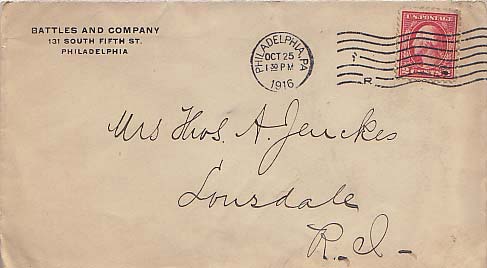 BATTLES AND COMPANY
131 SOUTH FIFTH ST.
PHILADELPHIA
PHILADELPHIA, PA
OCT 25
1 30 PM
1916
R
U.S. POSTAGE
2
Mrs Thos. A. Jenckes
Lonsdale
R. I. -